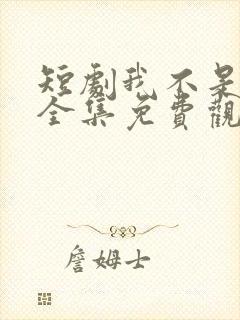 短劇我不是
全集免費觀
詹姆士